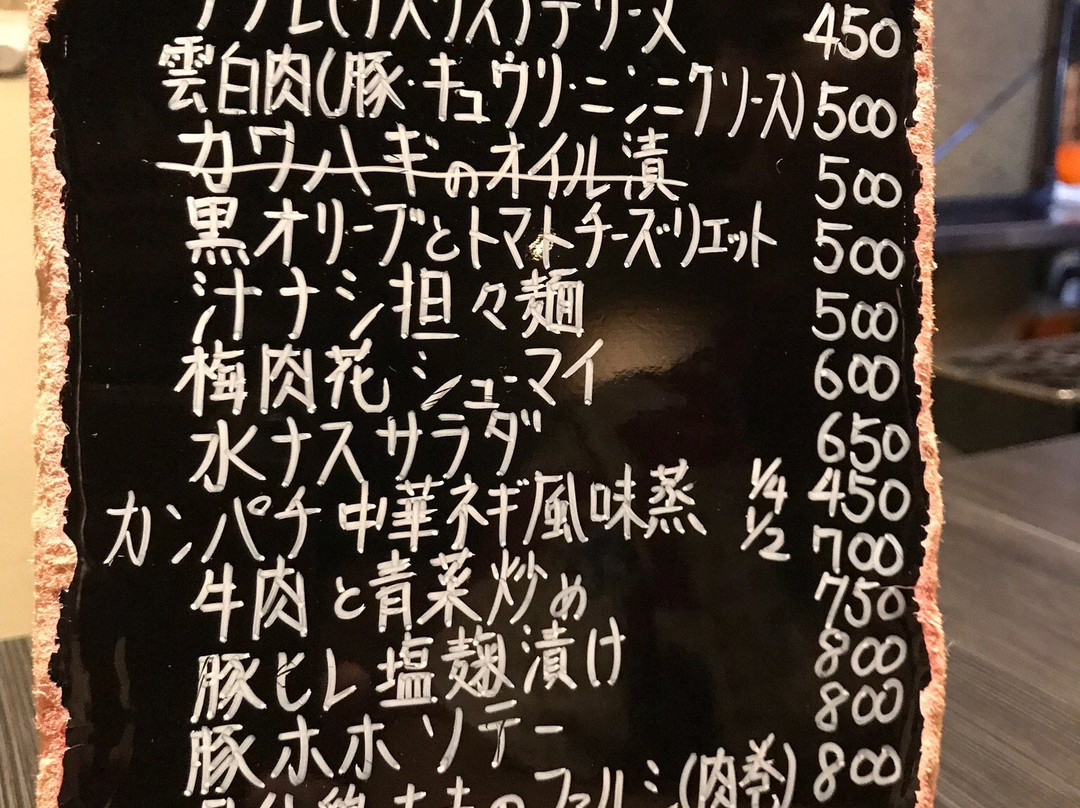 (クスクス)テリーヌ 450
雲白肉(豚・キュウリ・ニンニクソース) 500
カワハギのオイル漬 500
黒オリーブとトマトチーズリエット 500
汁ナシ担々麺 500
梅肉花シューマイ 600
水ナスサラダ 650
カンパチ中華ネギ風味蒸 1/4 450
1/2 700
牛肉と青菜炒め 750
豚ヒレ塩麹漬け 800
豚ホホソテー 800
(肉巻) 800